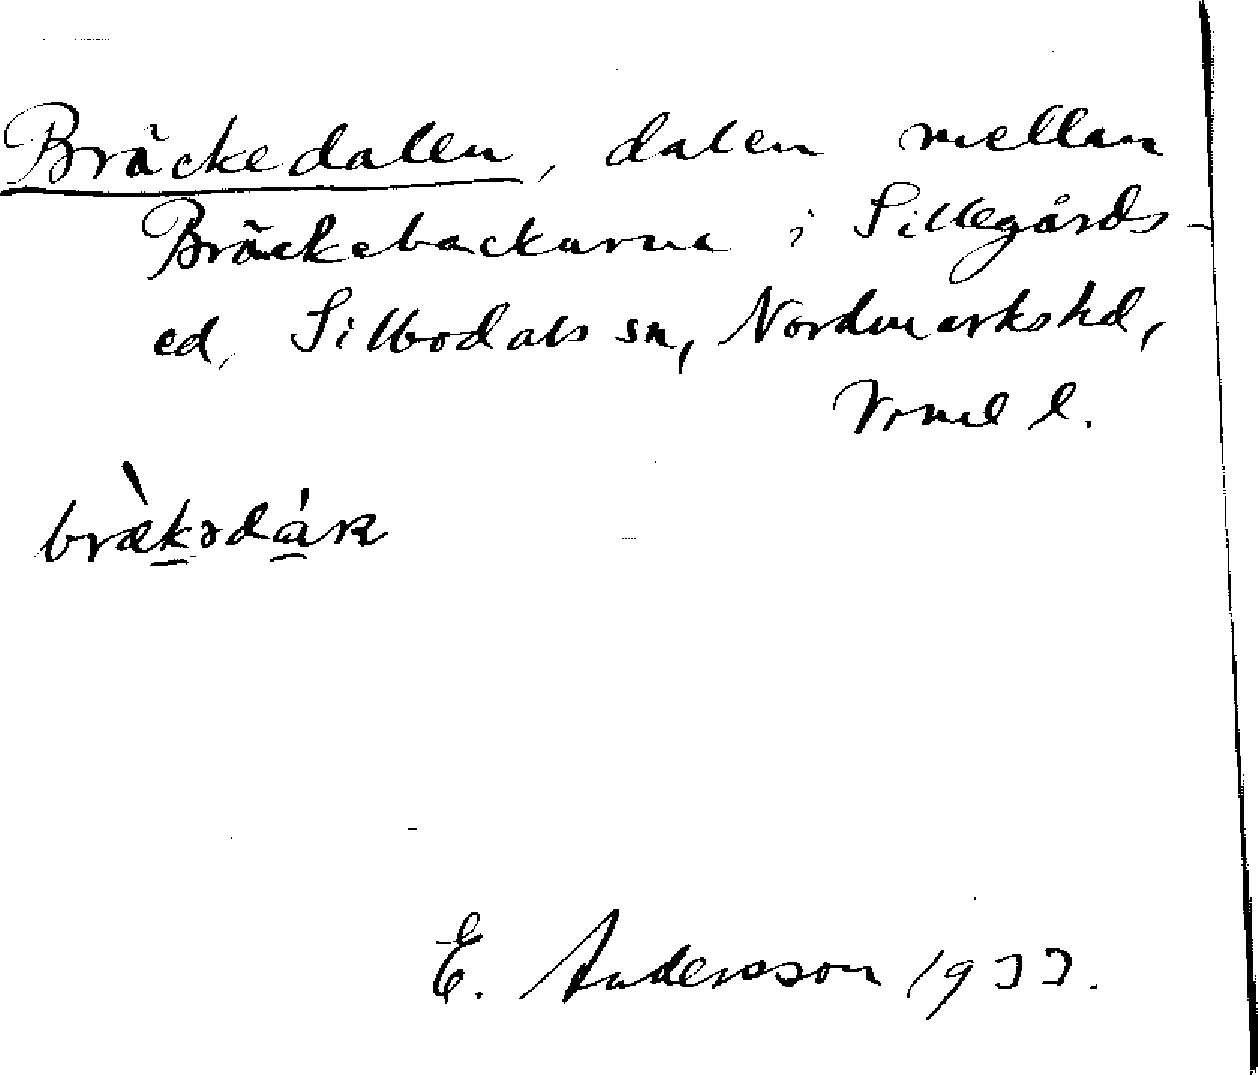 Bräckedalen, dalen mellan
Bräckebackarna i Sillegårds-
ed, Silbodals sn, Nordmarks hd,
Vrml l.
bræ̀kədáɴ
E. Andersson 1933.